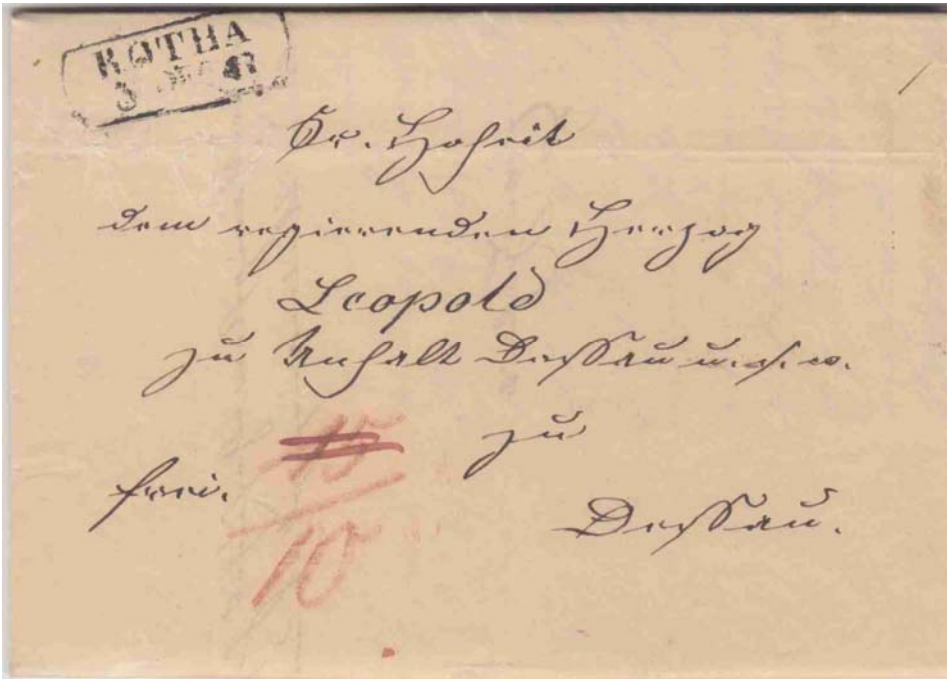 RÖTHA
Sr. Hoheit
dem regierenden Herzog
Leopold
zu Anhalt Dessau u. s. w.
zu
frei.
Dessau.
15
10